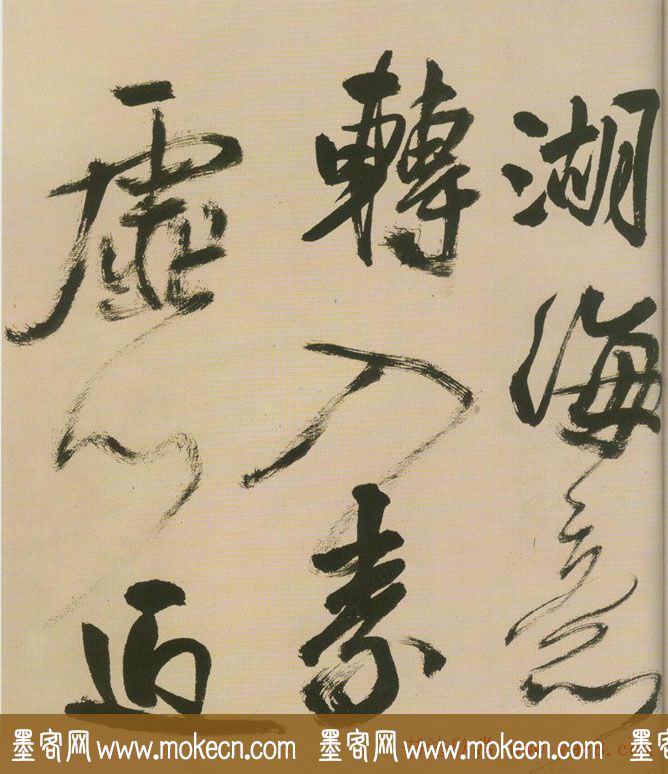 湖海意
轉入素
虛心
墨客网 www.mokecn.com 墨客网 www.mokecn.com